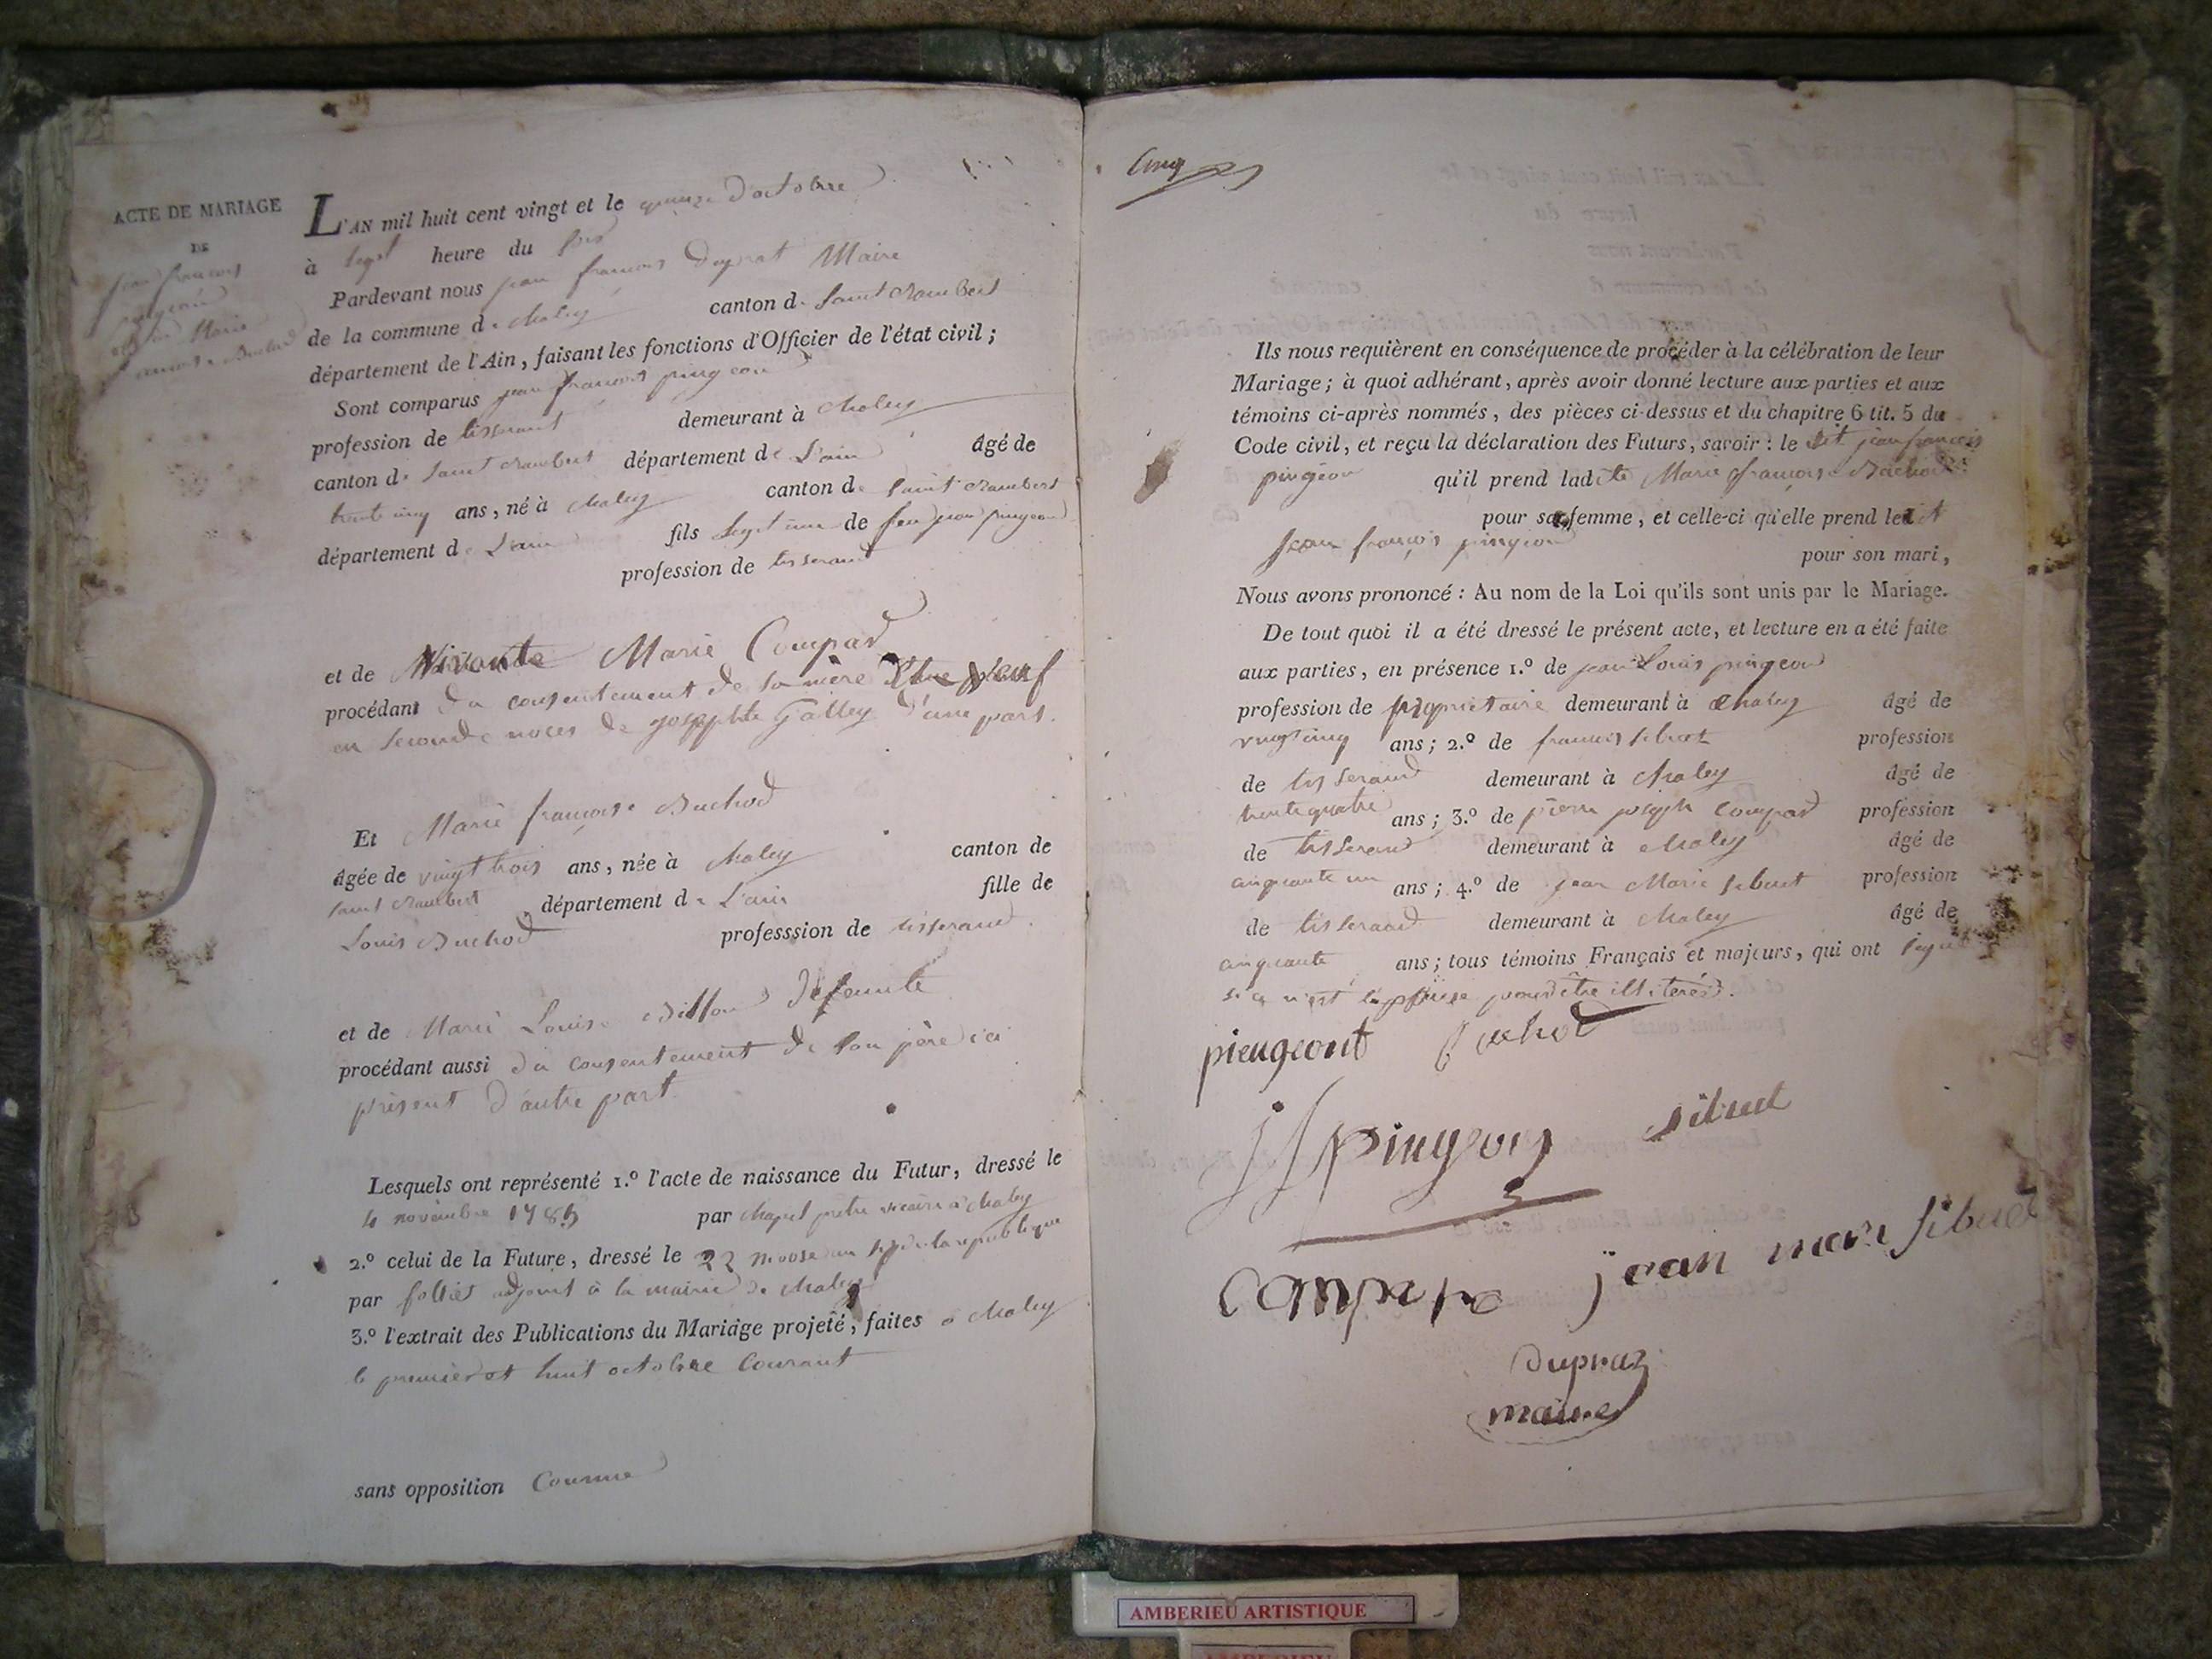 ACTE DE MARIAGE
DE
jean françois
pingeon
Marie
françoise Buchod
L'AN mil huit cent vingt et le quinze d'octobre
à sept heure du soir
Pardevant nous jean françois Duprat Maire
de la commune de chaley canton de Saint Rambert
département de l'Ain, faisant les fonctions d'Officier de l'état civil ;
Sont comparus jean françois pingeon
profession de tisserand demeurant à chaley
canton de Saint Rambert département de L'ain âgé de
trente cinq ans, né à chaley canton de Saint Rambert
département de L'ain fils legitime de feu jean pingeon
profession de tisserand
et de Vivante Marie Compard
procédant du consentement de sa mère Veuf
en seconde noces de josephte Galley d'une part.
Et Marie françoise Buchod
âgée de vingt trois ans, née à chaley canton de
saint Rambert département de L'ain fille de
Louis Buchod professsion de tisserand
et de Marie Louise Billon defeunte
procédant aussi du consentement de son père ici
présent d'autre part.
Lesquels ont représenté 1.º l'acte de naissance du Futur, dressé le
4 novembre 1785 par chapel prêtre vicaire à chaley
2.º celui de la Future, dressé le 22 nivose an sept de la republique
par folliet adjoint à la mairie de chaley
3.º l'extrait des Publications du Mariage projeté, faites à chaley
le premier et huit octobre Courant
sans opposition Connue
Cinq
Ils nous requièrent en conséquence de procéder à la célébration de leur
Mariage ; à quoi adhérant, après avoir donné lecture aux parties et aux
témoins ci-après nommés, des pièces ci-dessus et du chapitre 6 tit. 5 du
Code civil, et reçu la déclaration des Futurs, savoir : le dit jean françois
pingeon qu'il prend ladite Marie françoise Buchod
pour sa femme, et celle-ci qu'elle prend ledit
Jean françois pingeon pour son mari,
Nous avons prononcé : Au nom de la Loi qu'ils sont unis par le Mariage.
De tout quoi il a été dressé le présent acte, et lecture en a été faite
aux parties, en présence 1.º de jean Louis pingeon
profession de propriétaire demeurant à chaley âgé de
vingt cinq ans ; 2.º de francois sibuet profession
de tisserand demeurant à chaley âgé de
trente quatre ans ; 3.º de pierre joseph compard profession
de tisserand demeurant à chaley âgé de
cinquante un ans ; 4.º de jean Marie sibuet profession
de tisserand demeurant à chaley âgé de
cinquante ans ; tous témoins Français et majeurs, qui ont signé
si ce n'est l'épouse pour être illiterés.
piengeont Buchod
jl pingeon sibuet
compare jean mari sibuet
Dupraz
maire
AMBERIEU ARTISTIQUE
AMBERIEU